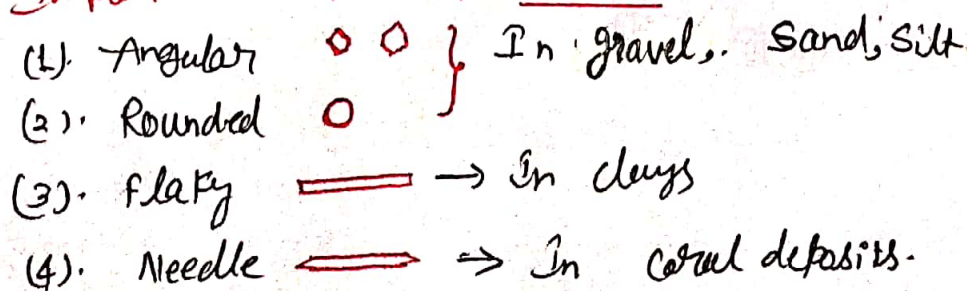 (1). Angular } In gravel, Sand, Silt
(2). Rounded
(3). flaky → In clays
(4). Needle → In coral deposits.